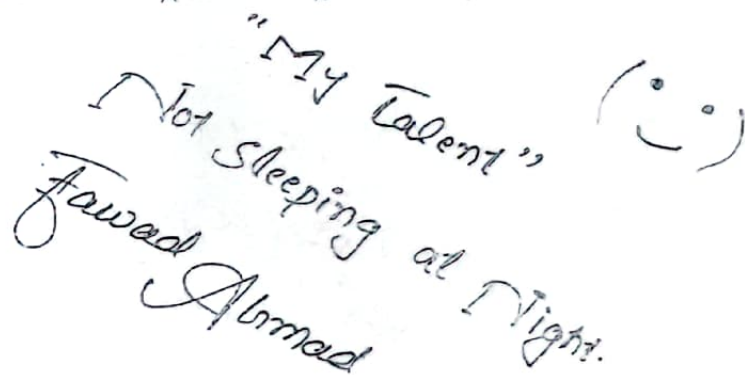 "My Talent"
Not Sleeping at Night.
Fawad Ahmad